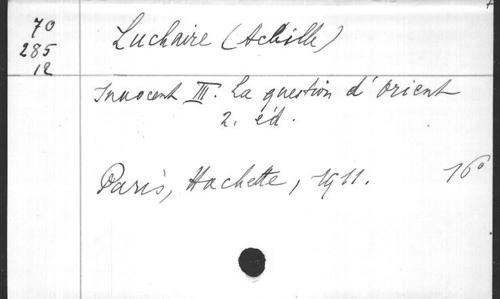 70
285
12
Luchaire (Achille)
Innocent III. La question d'Orient
2. éd.
Paris, Hachette, 1911. 16°